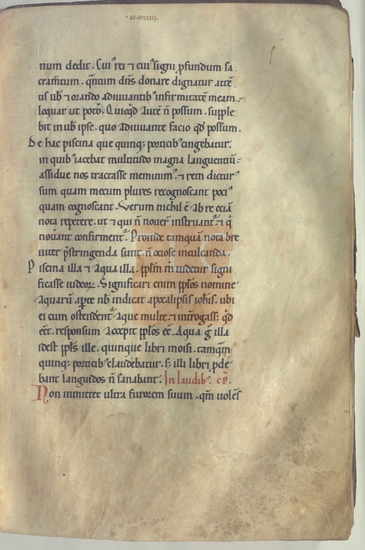 num dedit. Cui᷒ rei ⁊ cui᷒ signi ꝓfundum sa
cram̅tum. q̅ntum dn̅s donare dignatur. atte̅
tis ub̅ ⁊ orando adiuuantib᷒ infirmitatem meam.
loquar ut poto. Quicq̅d aute̅ n̅ possum. supple
bit in uob̅ ipse. quo adiuuante facio qd̅ possum.
De hac piscina que quinq; porticib᷒ cingebatur.
in quib᷒ iacebat multitudo magna languentiu̅.
assidue nos tractasse meminim᷒. ⁊ rem dictur᷒
sum quam mecum plures recognoscant poti᷒
quam cognoscant. Verum nichil e̅ ab re etia̅
nota repetere. ut ⁊ qui n̅ nouer̅ instruant᷒. ⁊ q̅
nouerant confirment᷒. Proinde tamqua̅ nota bre
uiter p̅stringenda sunt. n̅ ociose inculcanda.
Piscina illa ⁊ aqua illa. ppl̅m m̅ uidetur signi
ficasse iudeoꝝ. Significari enim ppl̅os nomine
aquaru̅ aperte nob̅ indicat apocalipsis ioh̅is. ubi
ei cum ostendere̅t᷒ aque multe. ⁊ int̅rogass; q̅d
ee̅nt. responsum accepit ppl̅os e̅e. Aqua g̅ illa
idest ppl̅s ille. quinque libri moisi. tamqua̅
quinq; porticib᷒ claudebatur. s; illi libri ꝓde
bant languidos n̅ sanabant. In laudib᷒. eṽ.
Non inmittet ultra furorem suum. qm̅ uole̅s